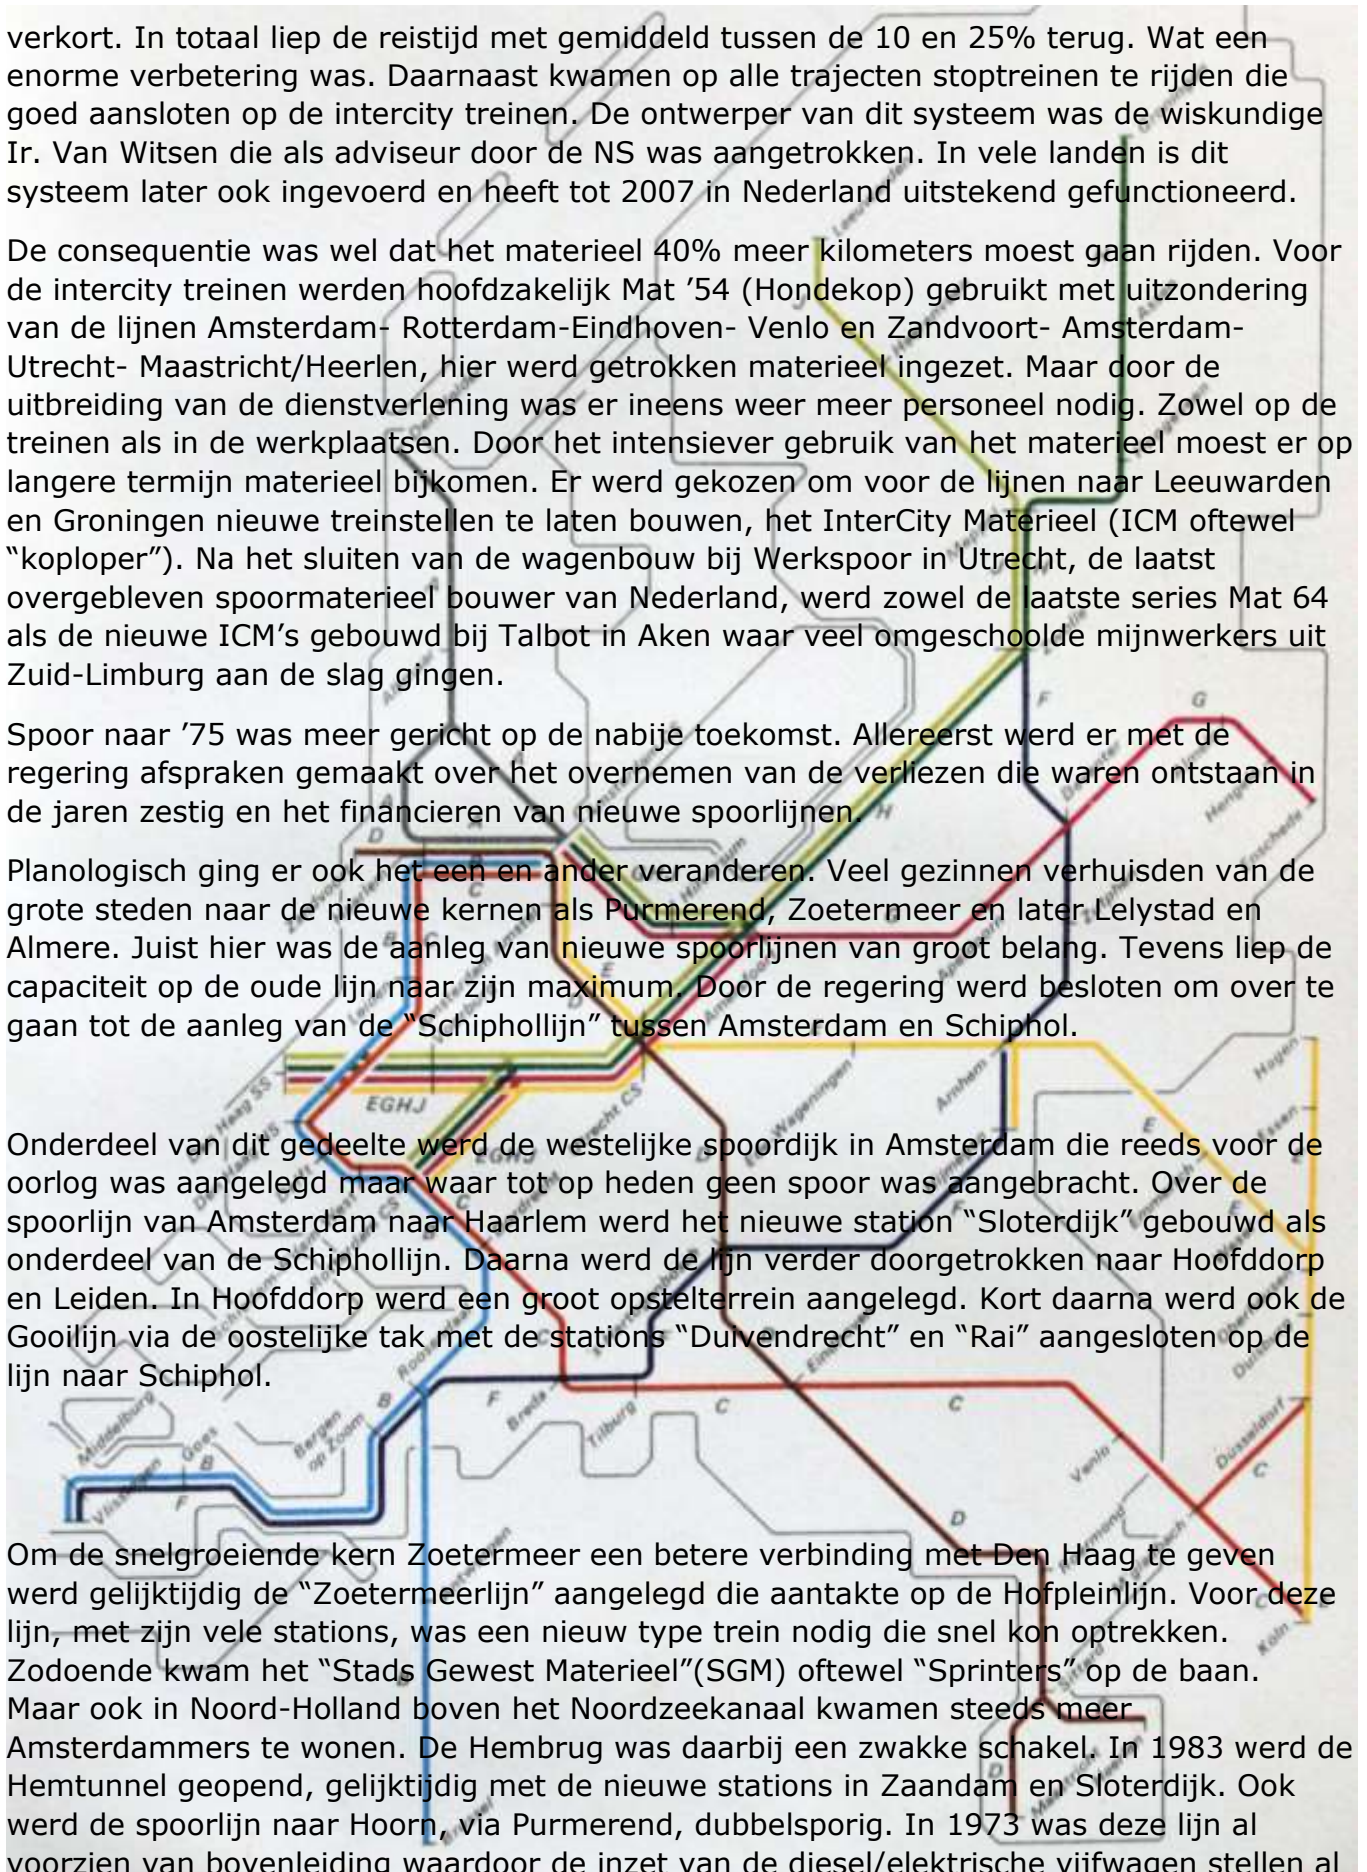 verkort. In totaal liep de reistijd met gemiddeld tussen de 10 en 25% terug. Wat een
enorme verbetering was. Daarnaast kwamen op alle trajecten stoptreinen te rijden die
goed aansloten op de intercity treinen. De ontwerper van dit systeem was de wiskundige
Ir. Van Witsen die als adviseur door de NS was aangetrokken. In vele landen is dit
systeem later ook ingevoerd en heeft tot 2007 in Nederland uitstekend gefunctioneerd.
De consequentie was wel dat het materieel 40% meer kilometers moest gaan rijden. Voor
de intercity treinen werden hoofdzakelijk Mat ’54 (Hondekop) gebruikt met uitzondering
van de lijnen Amsterdam- Rotterdam-Eindhoven- Venlo en Zandvoort- Amsterdam-
Utrecht- Maastricht/Heerlen, hier werd getrokken materieel ingezet. Maar door de
uitbreiding van de dienstverlening was er ineens weer meer personeel nodig. Zowel op de
treinen als in de werkplaatsen. Door het intensiever gebruik van het materieel moest er op
langere termijn materieel bijkomen. Er werd gekozen om voor de lijnen naar Leeuwarden
en Groningen nieuwe treinstellen te laten bouwen, het InterCity Materieel (ICM oftewel
“koploper”). Na het sluiten van de wagenbouw bij Werkspoor in Utrecht, de laatst
overgebleven spoormaterieel bouwer van Nederland, werd zowel de laatste series Mat 64
als de nieuwe ICM’s gebouwd bij Talbot in Aken waar veel omgeschoolde mijnwerkers uit
Zuid-Limburg aan de slag gingen.
Spoor naar ’75 was meer gericht op de nabije toekomst. Allereerst werd er met de
regering afspraken gemaakt over het overnemen van de verliezen die waren ontstaan in
de jaren zestig en het financieren van nieuwe spoorlijnen.
Planologisch ging er ook het een en ander veranderen. Veel gezinnen verhuisden van de
grote steden naar de nieuwe kernen als Purmerend, Zoetermeer en later Lelystad en
Almere. Juist hier was de aanleg van nieuwe spoorlijnen van groot belang. Tevens liep de
capaciteit op de oude lijn naar zijn maximum. Door de regering werd besloten om over te
gaan tot de aanleg van de “Schiphollijn” tussen Amsterdam en Schiphol.
Den Haag SS
EGHJ
Arnhem
Hagen
Essen
Onderdeel van dit gedeelte werd de westelijke spoordijk in Amsterdam die reeds voor de
oorlog was aangelegd maar waar tot op heden geen spoor was aangebracht. Over de
spoorlijn van Amsterdam naar Haarlem werd het nieuwe station “Sloterdijk” gebouwd als
onderdeel van de Schiphollijn. Daarna werd de lijn verder doorgetrokken naar Hoofddorp
en Leiden. In Hoofddorp werd een groot opstelterrein aangelegd. Kort daarna werd ook de
Gooilijn via de oostelijke tak met de stations “Duivendrecht” en “Rai” aangesloten op de
lijn naar Schiphol.
Middelburg
Goes
Bergen
op Zoom
B
F
Breda
Tilburg
C
C
Venlo
Düsseldorf
C
Vlissingen
B
F
D
Roermond
Om de snelgroeiende kern Zoetermeer een betere verbinding met Den Haag te geven
werd gelijktijdig de “Zoetermeerlijn” aangelegd die aantakte op de Hofpleinlijn. Voor deze
lijn, met zijn vele stations, was een nieuw type trein nodig die snel kon optrekken.
Zodoende kwam het “Stads Gewest Materieel”(SGM) oftewel “Sprinters” op de baan.
Maar ook in Noord-Holland boven het Noordzeekanaal kwamen steeds meer
Amsterdammers te wonen. De Hembrug was daarbij een zwakke schakel. In 1983 werd de
Hemtunnel geopend, gelijktijdig met de nieuwe stations in Zaandam en Sloterdijk. Ook
werd de spoorlijn naar Hoorn, via Purmerend, dubbelsporig. In 1973 was deze lijn al
voorzien van bovenleiding waardoor de inzet van de diesel/elektrische vijfwagen stellen al